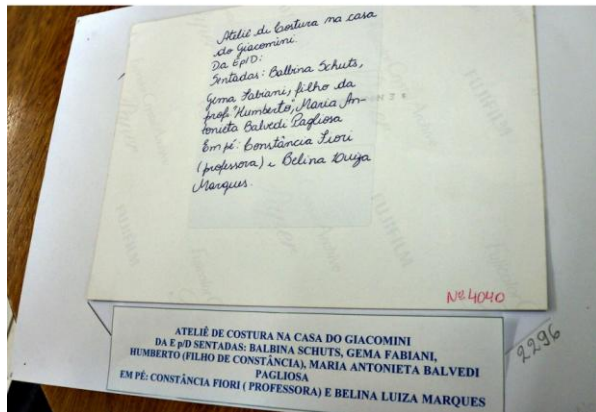 Ateliê de Costura na casa
do Giacomini.
Da Ep/D:
Sentadas: Balbina Schuts,
Gema Fabiani, filho da
prof. "Humberto", Maria An-
tonieta Balvedi Pagliosa
Em pé: Constância Fiori
(professora) e Belina Luiza
Marques.
FUJIFILM
FUJIFILM
FUJIFILM
Nº 4040
ATELIÊ DE COSTURA NA CASA DO GIACOMINI
DA E p/D SENTADAS: BALBINA SCHUTS, GEMA FABIANI,
HUMBERTO (FILHO DE CONSTÂNCIA), MARIA ANTONIETA BALVEDI
PAGLIOSA
EM PÉ: CONSTÂNCIA FIORI ( PROFESSORA) E BELINA LUIZA MARQUES
2296